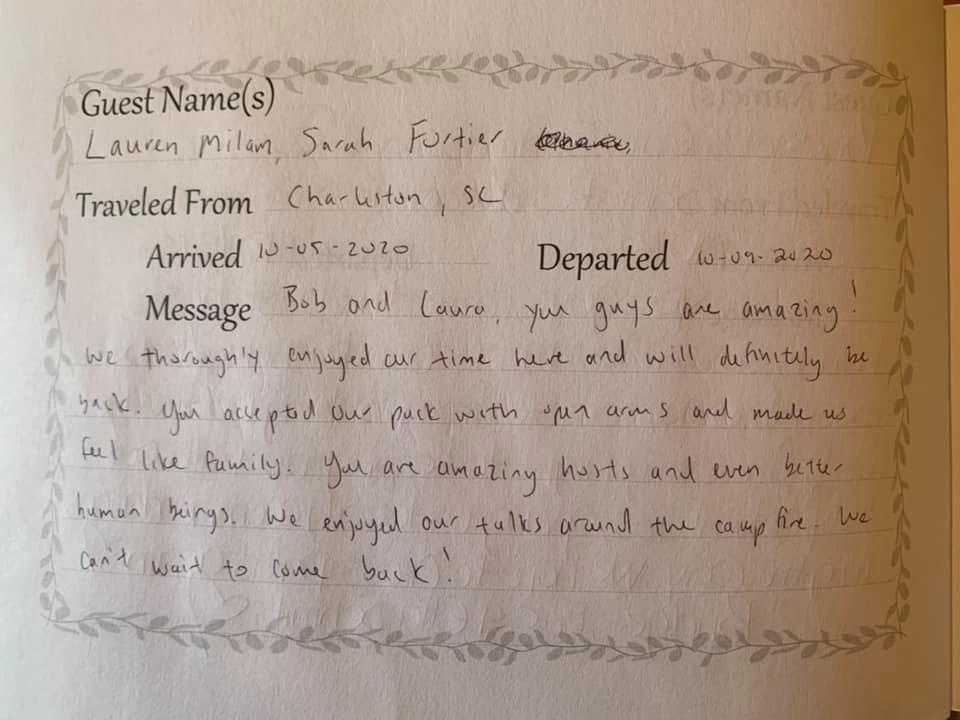 Guest Name(s)
Lauren Milam, Sarah Fortier
Traveled From Charleston, SC
Arrived 10-05-2020 Departed 10-09-2020
Message Bob and Laura, you guys are amazing!
We thoroughly enjoyed our time here and will definitely be
back. You accepted our pack with open arms and made us
feel like family. You are amazing hosts and even better
human beings. We enjoyed our talks around the camp fire. We
can't wait to come back!